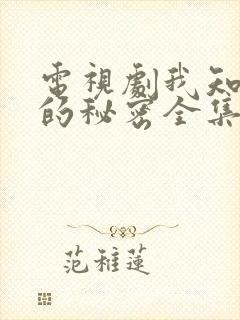 電視劇我知
的秘密全集
范稚蓮